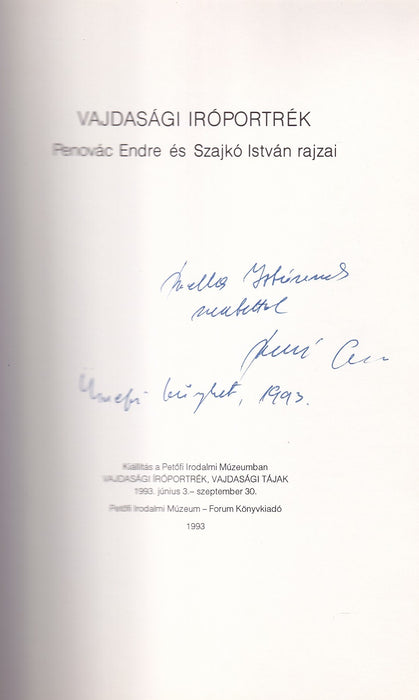 VAJDASÁGI IRÓPORTRÉK
Penovác Endre és Szajkó István rajzai
Istvánnak
szeretettel
Ünnepi könyvhét, 1993.
Kiállítás a Petőfi Irodalmi Múzeumban
VAJDASÁGI ÍRÓPORTRÉK, VAJDASÁGI TÁJAK
1993. június 3.– szeptember 30.
Petőfi Irodalmi Múzeum – Forum Könyvkiadó
1993